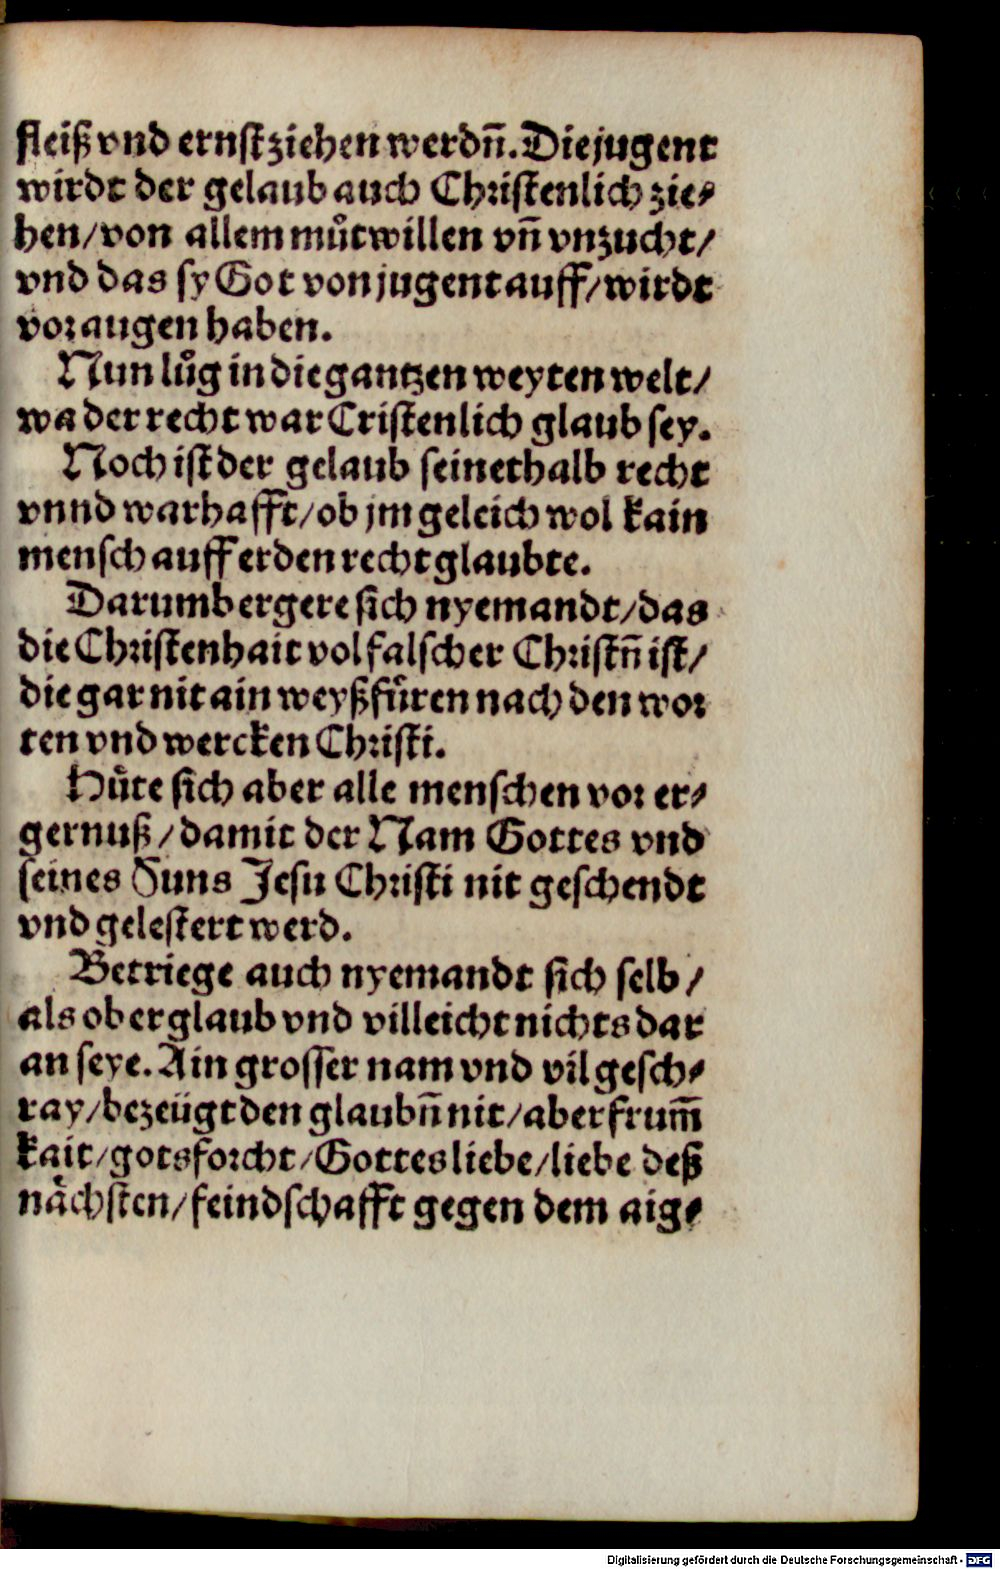 fleiß vnd ernst ziehen werdn̄. Die jugent
wirdt der gelaub auch Christenlich zie⸗
hen/ von allem můtwillen vn̄ vnzucht/
vnd das sy Got von jugent auff/ wirdt
vor augen haben.
Nun lůg in die gantzen weyten welt/
wa der recht war Cristenlich glaub sey.
Noch ist der gelaub seinethalb recht
vnnd warhafft/ ob jm geleich wol kain
mensch auff erden recht glaubte.
Darumb ergere sich nyemandt/ das
die Christenhait vol falscher Christn̄ ist/
die gar nit ain weyß fuͤren nach den wor
ten vnd wercken Christi.
Huͤte sich aber alle menschen vor er⸗
gernuß/ damit der Nam Gottes vnd
seines Suns Jesu Christi nit geschendt
vnd gelestert werd.
Betriege auch nyemandt sich selb/
als ob er glaub vnd villeicht nichts dar
an seye. Ain grosser nam vnd vil gesch⸗
ray/ bezeügt den glaubn̄ nit/ aber frum̄
kait/ gotsforcht/ Gottes liebe/ liebe deß
naͤchsten/ feindschafft gegen dem aige⸗
Digitalisierung gefördert durch die Deutsche Forschungsgemeinschaft - DFG